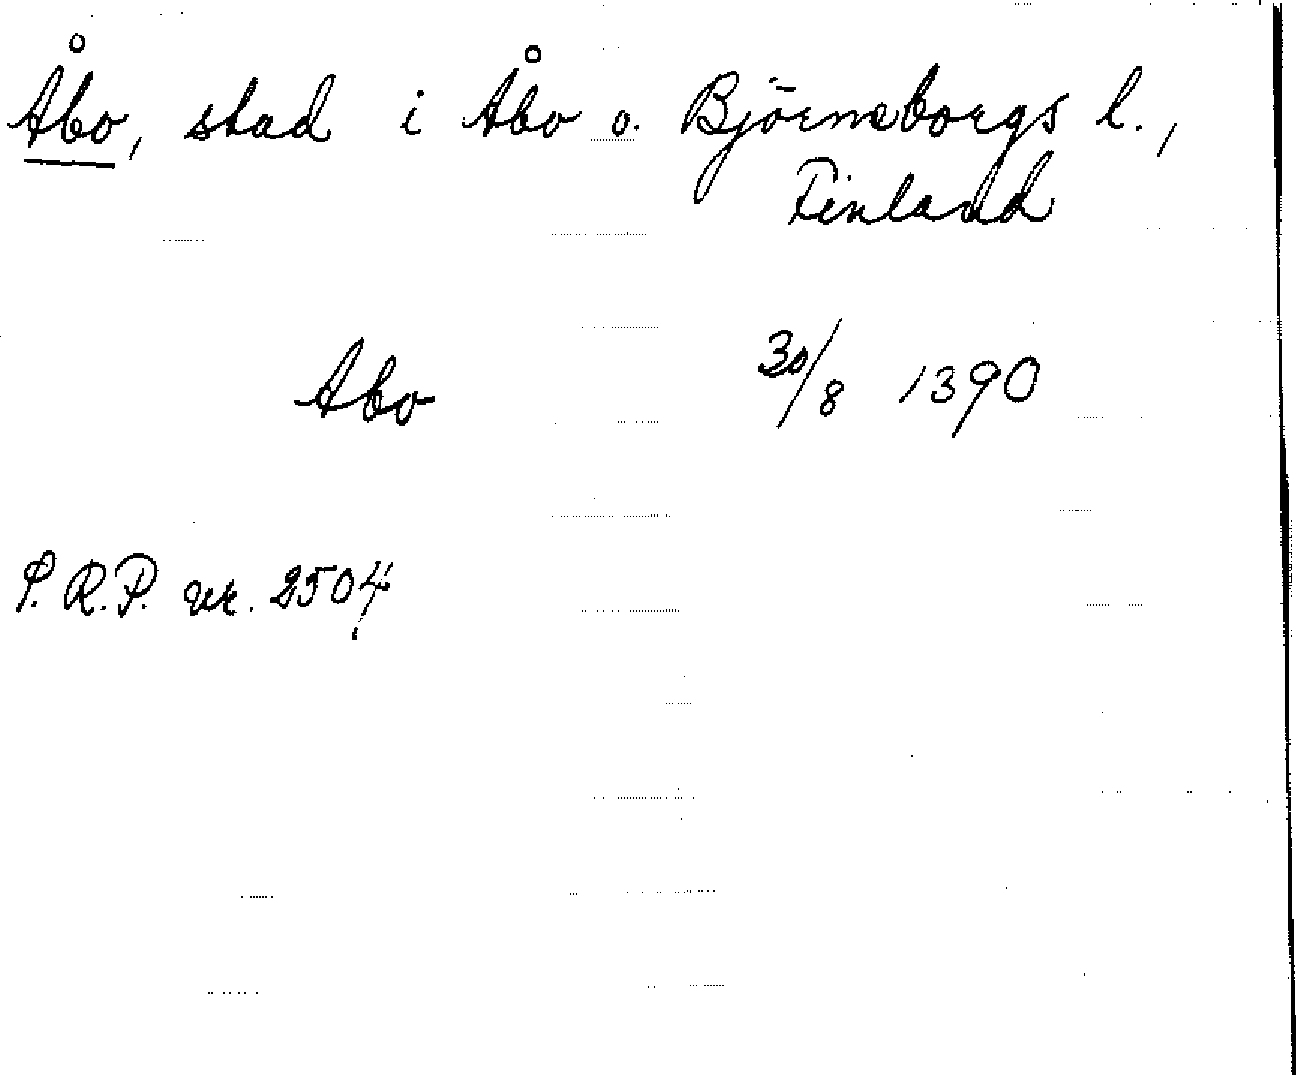 Åbo, stad i Åbo o. Björneborgs l.,
Finland
Abo 30/8 1390
P.R.P. nr. 2504